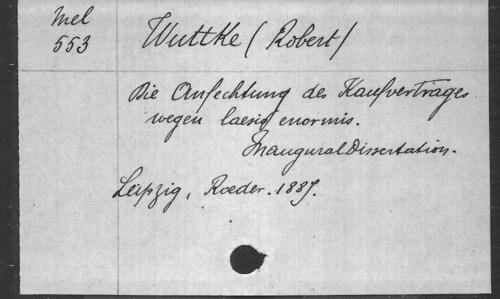 Mel
553
Wuttke (Robert)
Die Anfechtung des Kaufvertrages
wegen laesio enormis.
Inaugural Dissertation.
Leipzig, Roeder. 1887.